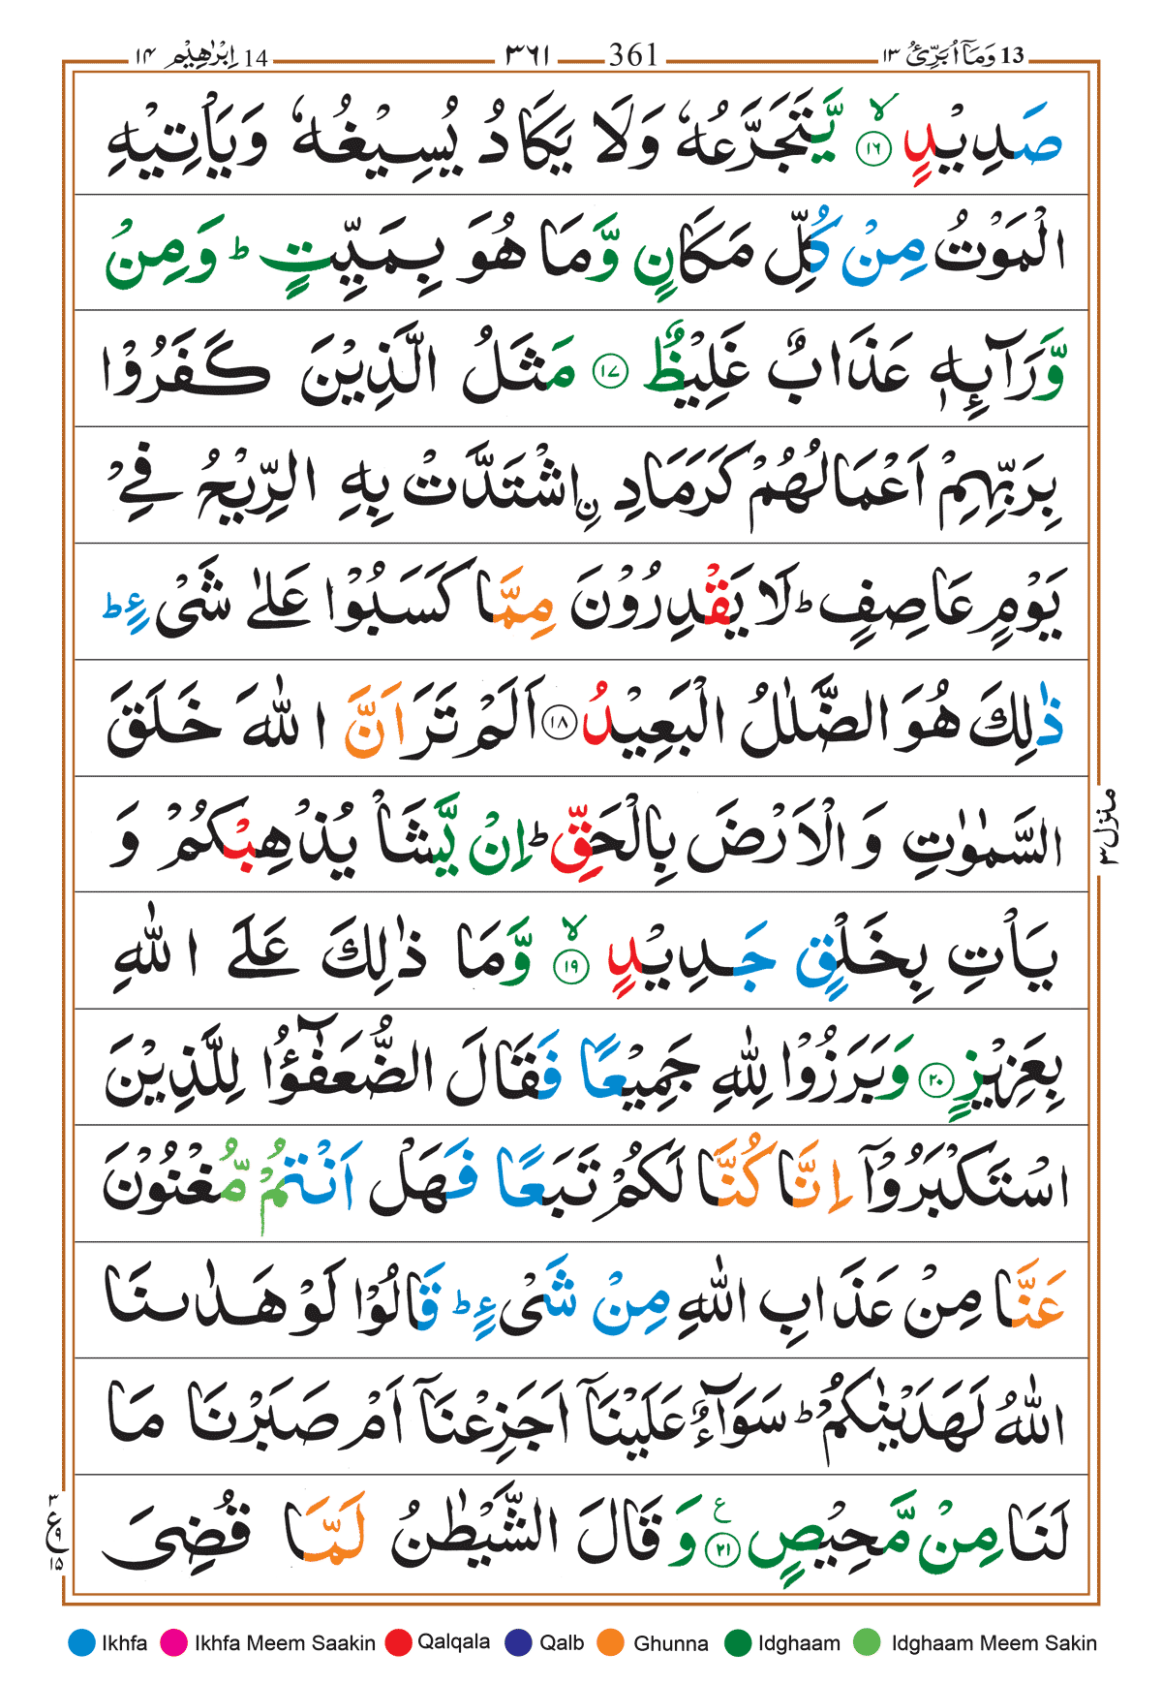 13 وَمَاۤ اُبَرِّئُ ١٣
361 ٣٦١
14 اِبْرٰهِيْم ١٤
صَدِيْدٍ ۙ‏﴿۱۶﴾ يَّتَجَرَّعُهٗ وَلَا يَكَادُ يُسِيْغُهٗ وَيَاْتِيْهِ
الْمَوْتُ مِنْ كُلِّ مَكَانٍ وَّمَا هُوَ بِمَيِّتٍ ؕ وَمِنْ
وَّرَآئِهٖ عَذَابٌ غَلِيْظٌ ﴿۱۷﴾ مَثَلُ الَّذِيْنَ كَفَرُوْا
بِرَبِّهِمْ اَعْمَالُهُمْ كَرَمَادِ ۟اشْتَدَّتْ بِهِ الرِّيْحُ فِىْ
يَوْمٍ عَاصِفٍ ؕ لَا يَقْدِرُوْنَ مِمَّا كَسَبُوْا عَلٰى شَىْءٍ ؕ
ذٰلِكَ هُوَ الضَّلٰلُ الْبَعِيْدُ ﴿۱۸﴾ اَلَمْ تَرَ اَنَّ اللّٰهَ خَلَقَ
السَّمٰوٰتِ وَالْاَرْضَ بِالْحَقِّ ؕ اِنْ يَّشَاْ يُذْهِبْكُمْ وَ
يَاْتِ بِخَلْقٍ جَدِيْدٍ ۙ﴿۱۹﴾ وَّمَا ذٰلِكَ عَلَى اللّٰهِ
بِعَزِيْزٍ ﴿۲۰﴾ وَبَرَزُوْا لِلّٰهِ جَمِيْعًا فَقَالَ الضُّعَفٰٓؤُا لِلَّذِيْنَ
اسْتَكْبَرُوْۤا اِنَّا كُنَّا لَكُمْ تَبَعًا فَهَلْ اَنْتُمْ مُّغْنُوْنَ
عَنَّا مِنْ عَذَابِ اللّٰهِ مِنْ شَىْءٍ ؕ قَالُوْا لَوْ هَدٰٮنَا
اللّٰهُ لَهَدَيْنٰكُمْ ؕ سَوَآءٌ عَلَيْنَاۤ اَجَزِعْنَاۤ اَمْ صَبَرْنَا مَا
لَنَا مِنْ مَّحِيْصٍ ﴿۲۱﴾ ع وَقَالَ الشَّيْطٰنُ لَمَّا قُضِىَ
منزل ٣
٣
ع ٩
١٥
Ikhfa Ikhfa Meem Saakin Qalqala Qalb Ghunna Idghaam Idghaam Meem Sakin